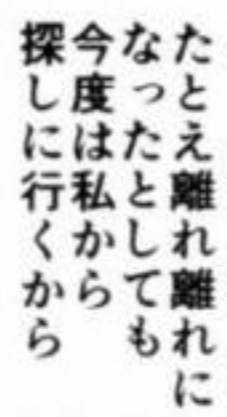 たとえ離れ離れに
なったとしても
今度は私から
探しに行くから